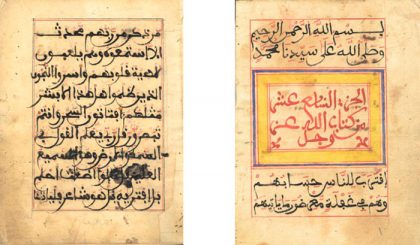 بسم الله الرحمن الرحيم
وصلى الله على سيدنا محمد
الجزء السابع عشر
من كتاب الله عز
وجل
اقترب للناس حسابهم
وهم في غفلة معرضون ما ياتيهم
من ذكر من ربهم محدث
الا استمعوه وهم يلعبون
لاهية قلوبهم واسروا النجوى
الذين ظلموا هل هذا الا بشر
مثلكم افتاتون السحر وانتم
تبصرون قل ربي يعلم القول في
السماء والارض وهو السميع
العليم بل قالوا اضغاث احلام
بل افتريه بل هو شاعر فلياتنا